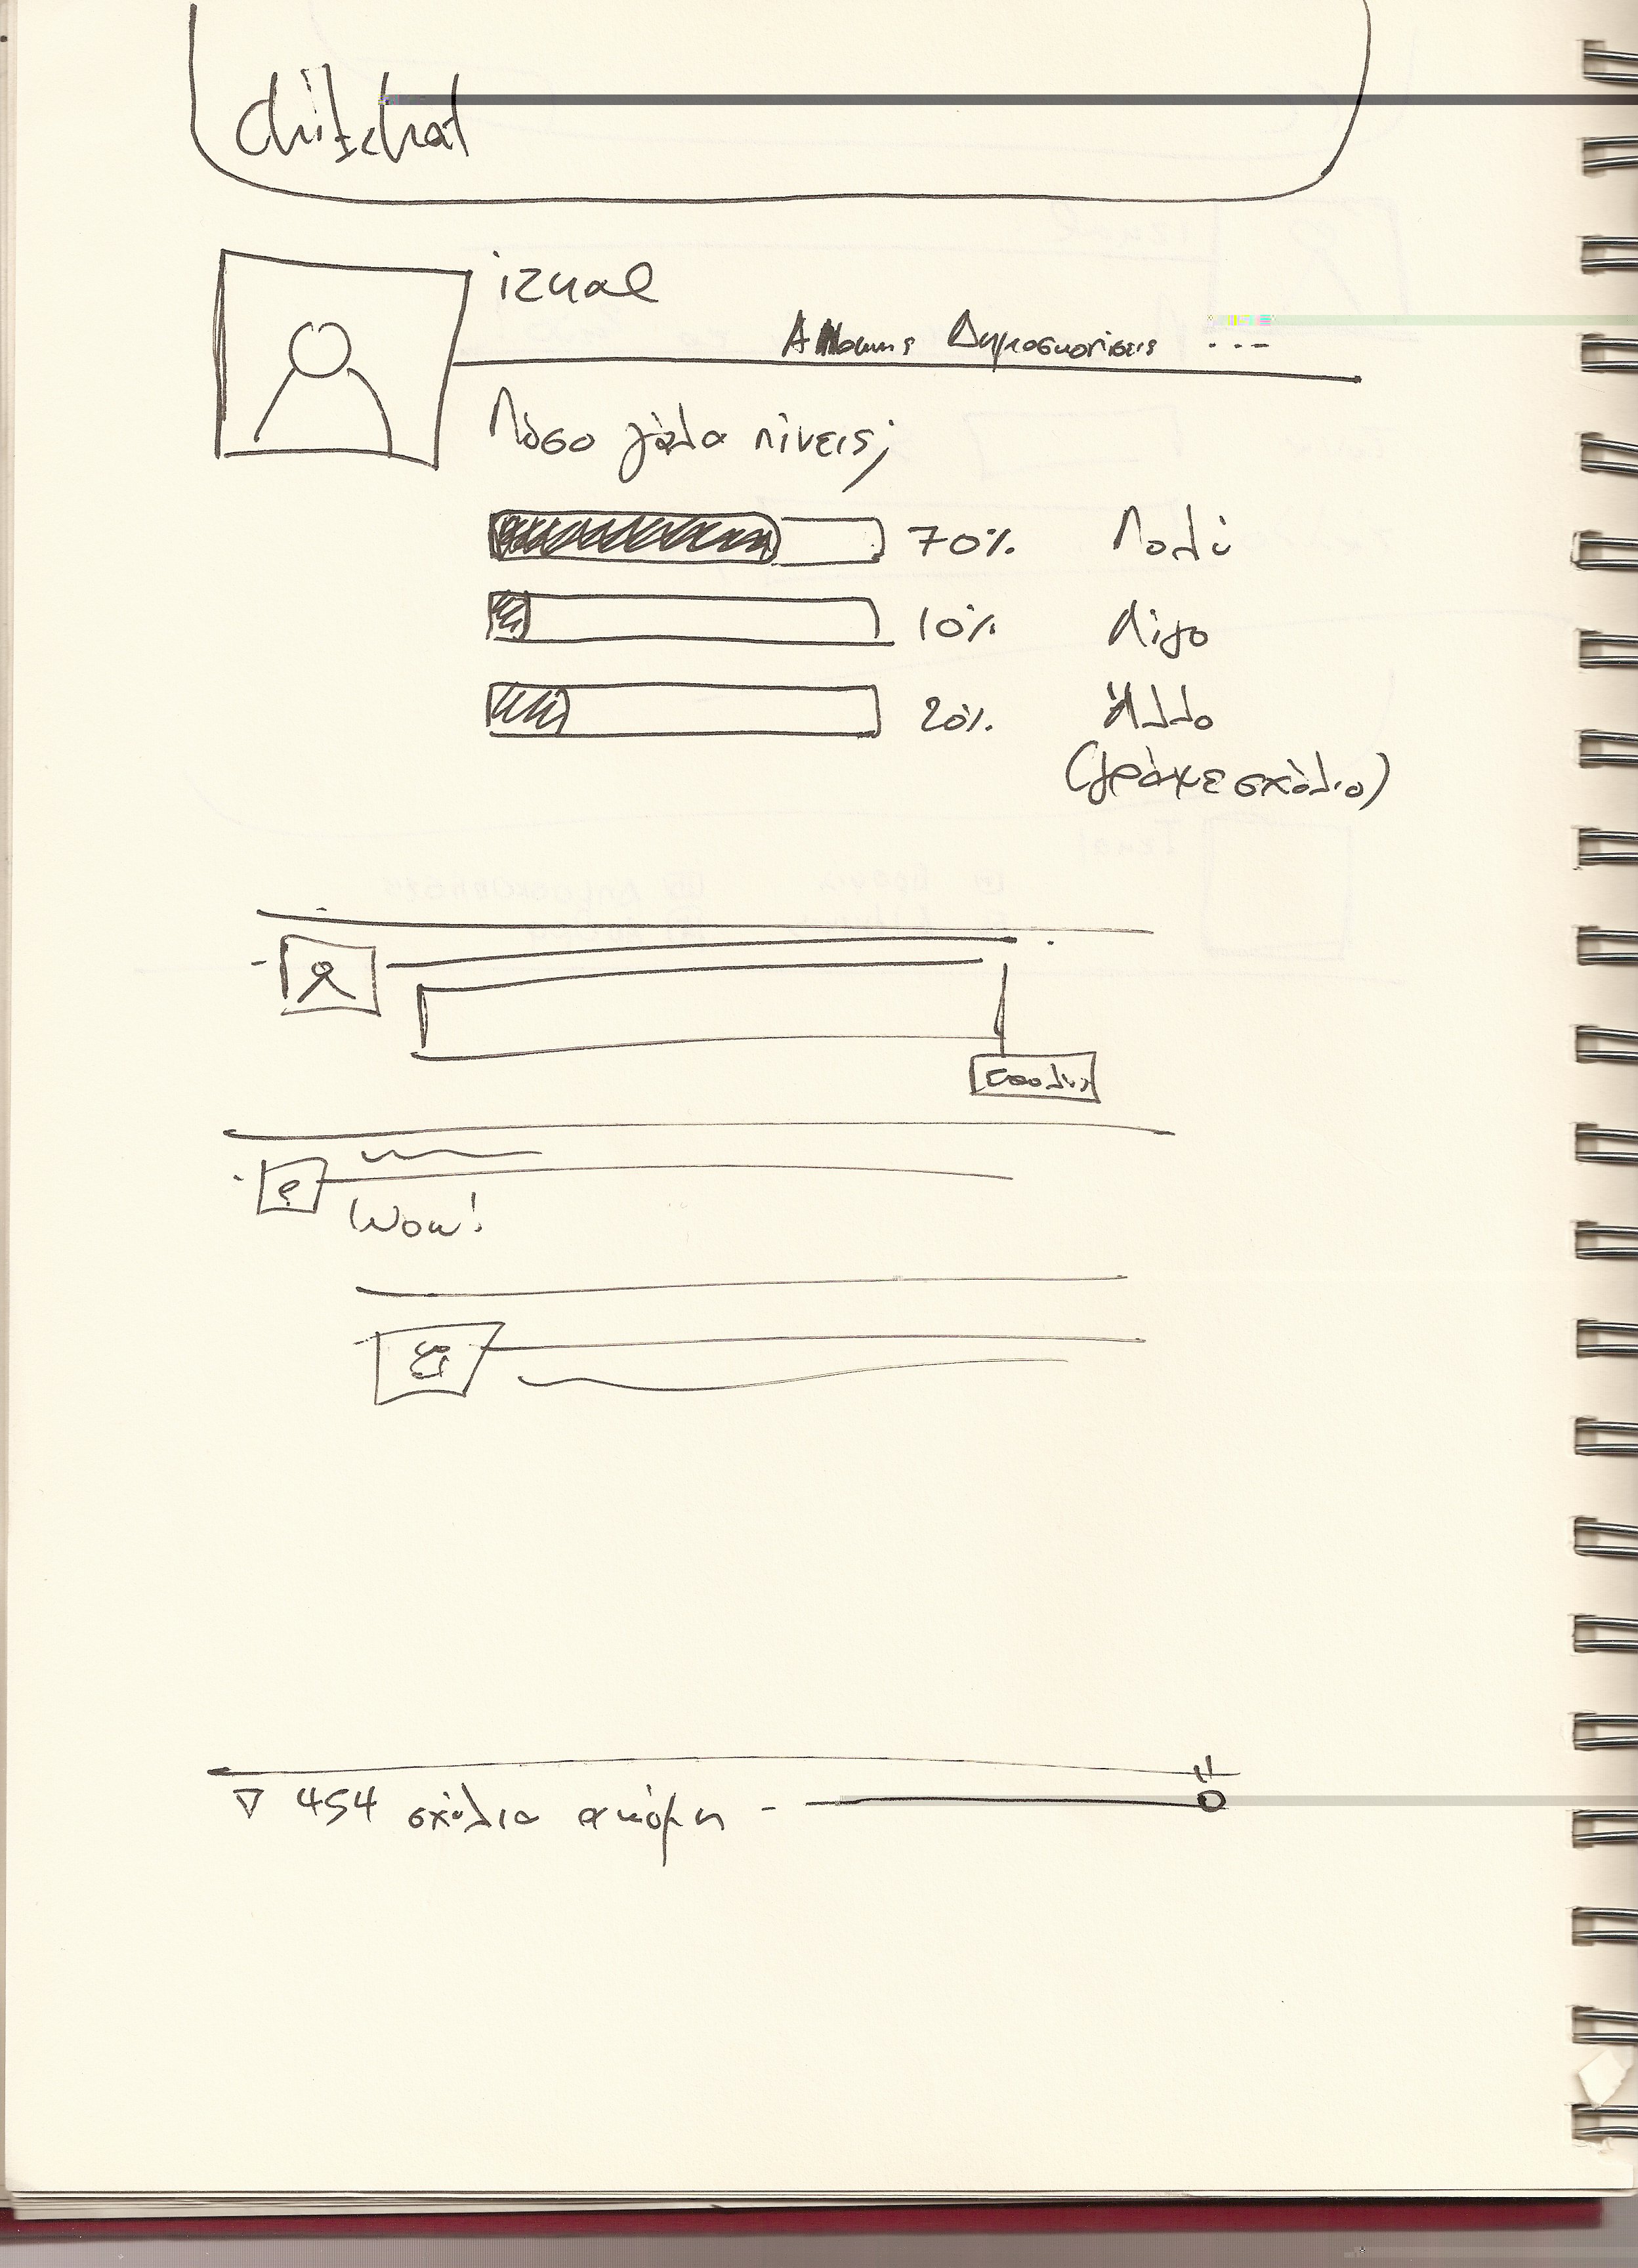 chitchat
izual
Δημοσκοπίσεις ...
Πόσο γάλα πίνεις;
70% Πολύ
10% Λίγο
20% Άλλο
(γράψε σχόλιο)
Wow!
454 σχόλια ακόμη -